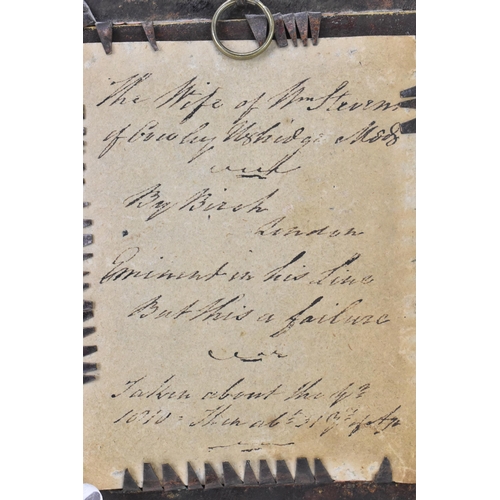 The Wife of Wm Stevens
of Cowley Uxbridge Midds
By Birch
London
Eminent in his line
But this a failure
Taken about the Yr
1810 Then abt 31 Yrs of Age